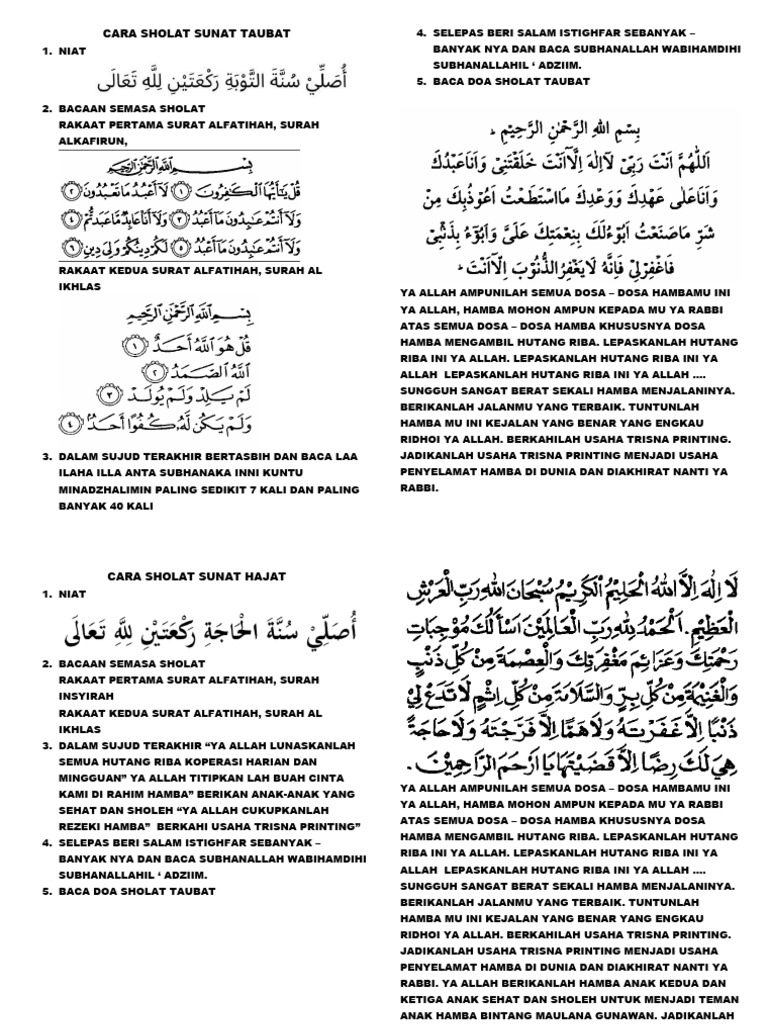 CARA SHOLAT SUNAT TAUBAT
1. NIAT
أُصَلِّيْ سُنَّةَ التَّوْبَةِ رَكْعَتَيْنِ لِلَّهِ تَعَالَى
2. BACAAN SEMASA SHOLAT
RAKAAT PERTAMA SURAT ALFATIHAH, SURAH
ALKAFIRUN,
بِسْمِ اللَّهِ الرَّحْمَنِ الرَّحِيمِ
قُلْ يَا أَيُّهَا الْكَافِرُونَ ١ لَا أَعْبُدُ مَا تَعْبُدُونَ ٢
وَلَا أَنْتُمْ عَابِدُونَ مَا أَعْبُدُ ٣ وَلَا أَنَا عَابِدٌ مَا عَبَدْتُمْ ٤
وَلَا أَنْتُمْ عَابِدُونَ مَا أَعْبُدُ ٥ لَكُمْ دِينُكُمْ وَلِيَ دِينِ ٦
RAKAAT KEDUA SURAT ALFATIHAH, SURAH AL
IKHLAS
بِسْمِ اللَّهِ الرَّحْمَنِ الرَّحِيمِ
قُلْ هُوَ اللَّهُ أَحَدٌ ١
اللَّهُ الصَّمَدُ ٢
لَمْ يَلِدْ وَلَمْ يُولَدْ ٣
وَلَمْ يَكُنْ لَهُ كُفُوًا أَحَدٌ ٤
3. DALAM SUJUD TERAKHIR BERTASBIH DAN BACA LAA
ILAHA ILLA ANTA SUBHANAKA INNI KUNTU
MINADZHALIMIN PALING SEDIKIT 7 KALI DAN PALING
BANYAK 40 KALI
4. SELEPAS BERI SALAM ISTIGHFAR SEBANYAK –
BANYAK NYA DAN BACA SUBHANALLAH WABIHAMDIHI
SUBHANALLAHIL ‘ ADZIIM.
5. BACA DOA SHOLAT TAUBAT
بِسْمِ اللهِ الرَّحْمٰنِ الرَّحِيْمِ
اَللّٰهُمَّ اَنْتَ رَبِّىْ لَآ اِلٰهَ اِلَّا اَنْتَ خَلَقْتَنِىْ وَاَنَا عَبْدُكَ
وَاَنَا عَلٰى عَهْدِكَ وَوَعْدِكَ مَا اسْتَطَعْتُ اَعُوْذُبِكَ مِنْ
شَرِّ مَا صَنَعْتُ اَبُوْءُ لَكَ بِنِعْمَتِكَ عَلَىَّ وَاَبُوْءُ بِذَنْبِىْ
فَاغْفِرْلِىْ فَاِنَّهُ لَا يَغْفِرُ الذُّنُوْبَ اِلَّا اَنْتَ
YA ALLAH AMPUNILAH SEMUA DOSA – DOSA HAMBAMU INI
YA ALLAH, HAMBA MOHON AMPUN KEPADA MU YA RABBI
ATAS SEMUA DOSA – DOSA HAMBA KHUSUSNYA DOSA
HAMBA MENGAMBIL HUTANG RIBA. LEPASKANLAH HUTANG
RIBA INI YA ALLAH. LEPASKANLAH HUTANG RIBA INI YA
ALLAH LEPASKANLAH HUTANG RIBA INI YA ALLAH ....
SUNGGUH SANGAT BERAT SEKALI HAMBA MENJALANINYA.
BERIKANLAH JALANMU YANG TERBAIK. TUNTUNLAH
HAMBA MU INI KEJALAN YANG BENAR YANG ENGKAU
RIDHOI YA ALLAH. BERKAHILAH USAHA TRISNA PRINTING.
JADIKANLAH USAHA TRISNA PRINTING MENJADI USAHA
PENYELAMAT HAMBA DI DUNIA DAN DIAKHIRAT NANTI YA
RABBI.
CARA SHOLAT SUNAT HAJAT
1. NIAT
أُصَلِّيْ سُنَّةَ الْحَاجَةِ رَكْعَتَيْنِ لِلَّهِ تَعَالَى
2. BACAAN SEMASA SHOLAT
RAKAAT PERTAMA SURAT ALFATIHAH, SURAH
INSYIRAH
RAKAAT KEDUA SURAT ALFATIHAH, SURAH AL
IKHLAS
3. DALAM SUJUD TERAKHIR “YA ALLAH LUNASKANLAH
SEMUA HUTANG RIBA KOPERASI HARIAN DAN
MINGGUAN” YA ALLAH TITIPKAN LAH BUAH CINTA
KAMI DI RAHIM HAMBA” BERIKAN ANAK-ANAK YANG
SEHAT DAN SHOLEH “YA ALLAH CUKUPKANLAH
REZEKI HAMBA” BERKAHI USAHA TRISNA PRINTING”
4. SELEPAS BERI SALAM ISTIGHFAR SEBANYAK –
BANYAK NYA DAN BACA SUBHANALLAH WABIHAMDIHI
SUBHANALLAHIL ‘ ADZIIM.
5. BACA DOA SHOLAT TAUBAT
لَا اِلٰهَ اِلَّا اللهُ الْحَلِيْمُ الْكَرِيْمُ سُبْحَانَ اللهِ رَبِّ الْعَرْشِ
الْعَظِيْمِ. اَلْحَمْدُ لِلّٰهِ رَبِّ الْعَالَمِيْنَ اَسْأَلُكَ مُوْجِبَاتِ
رَحْمَتِكَ وَعَزَائِمَ مَغْفِرَتِكَ وَالْعِصْمَةَ مِنْ كُلِّ ذَنْبٍ
وَالْغَنِيْمَةَ مِنْ كُلِّ بِرٍّ وَالسَّلَامَةَ مِنْ كُلِّ اِثْمٍ لَا تَدَعْ لِيْ
ذَنْبًا اِلَّا غَفَرْتَهُ وَلَا هَمًّا اِلَّا فَرَّجْتَهُ وَلَا حَاجَةً
هِيَ لَكَ رِضًا اِلَّا قَضَيْتَهَا يَا اَرْحَمَ الرَّاحِمِيْنَ.
YA ALLAH AMPUNILAH SEMUA DOSA – DOSA HAMBAMU INI
YA ALLAH, HAMBA MOHON AMPUN KEPADA MU YA RABBI
ATAS SEMUA DOSA – DOSA HAMBA KHUSUSNYA DOSA
HAMBA MENGAMBIL HUTANG RIBA. LEPASKANLAH HUTANG
RIBA INI YA ALLAH. LEPASKANLAH HUTANG RIBA INI YA
ALLAH LEPASKANLAH HUTANG RIBA INI YA ALLAH ....
SUNGGUH SANGAT BERAT SEKALI HAMBA MENJALANINYA.
BERIKANLAH JALANMU YANG TERBAIK. TUNTUNLAH
HAMBA MU INI KEJALAN YANG BENAR YANG ENGKAU
RIDHOI YA ALLAH. BERKAHILAH USAHA TRISNA PRINTING.
JADIKANLAH USAHA TRISNA PRINTING MENJADI USAHA
PENYELAMAT HAMBA DI DUNIA DAN DIAKHIRAT NANTI YA
RABBI. YA ALLAH BERIKANLAH HAMBA ANAK KEDUA DAN
KETIGA ANAK SEHAT DAN SHOLEH UNTUK MENJADI TEMAN
ANAK HAMBA BINTANG MAULANA GUNAWAN. JADIKANLAH